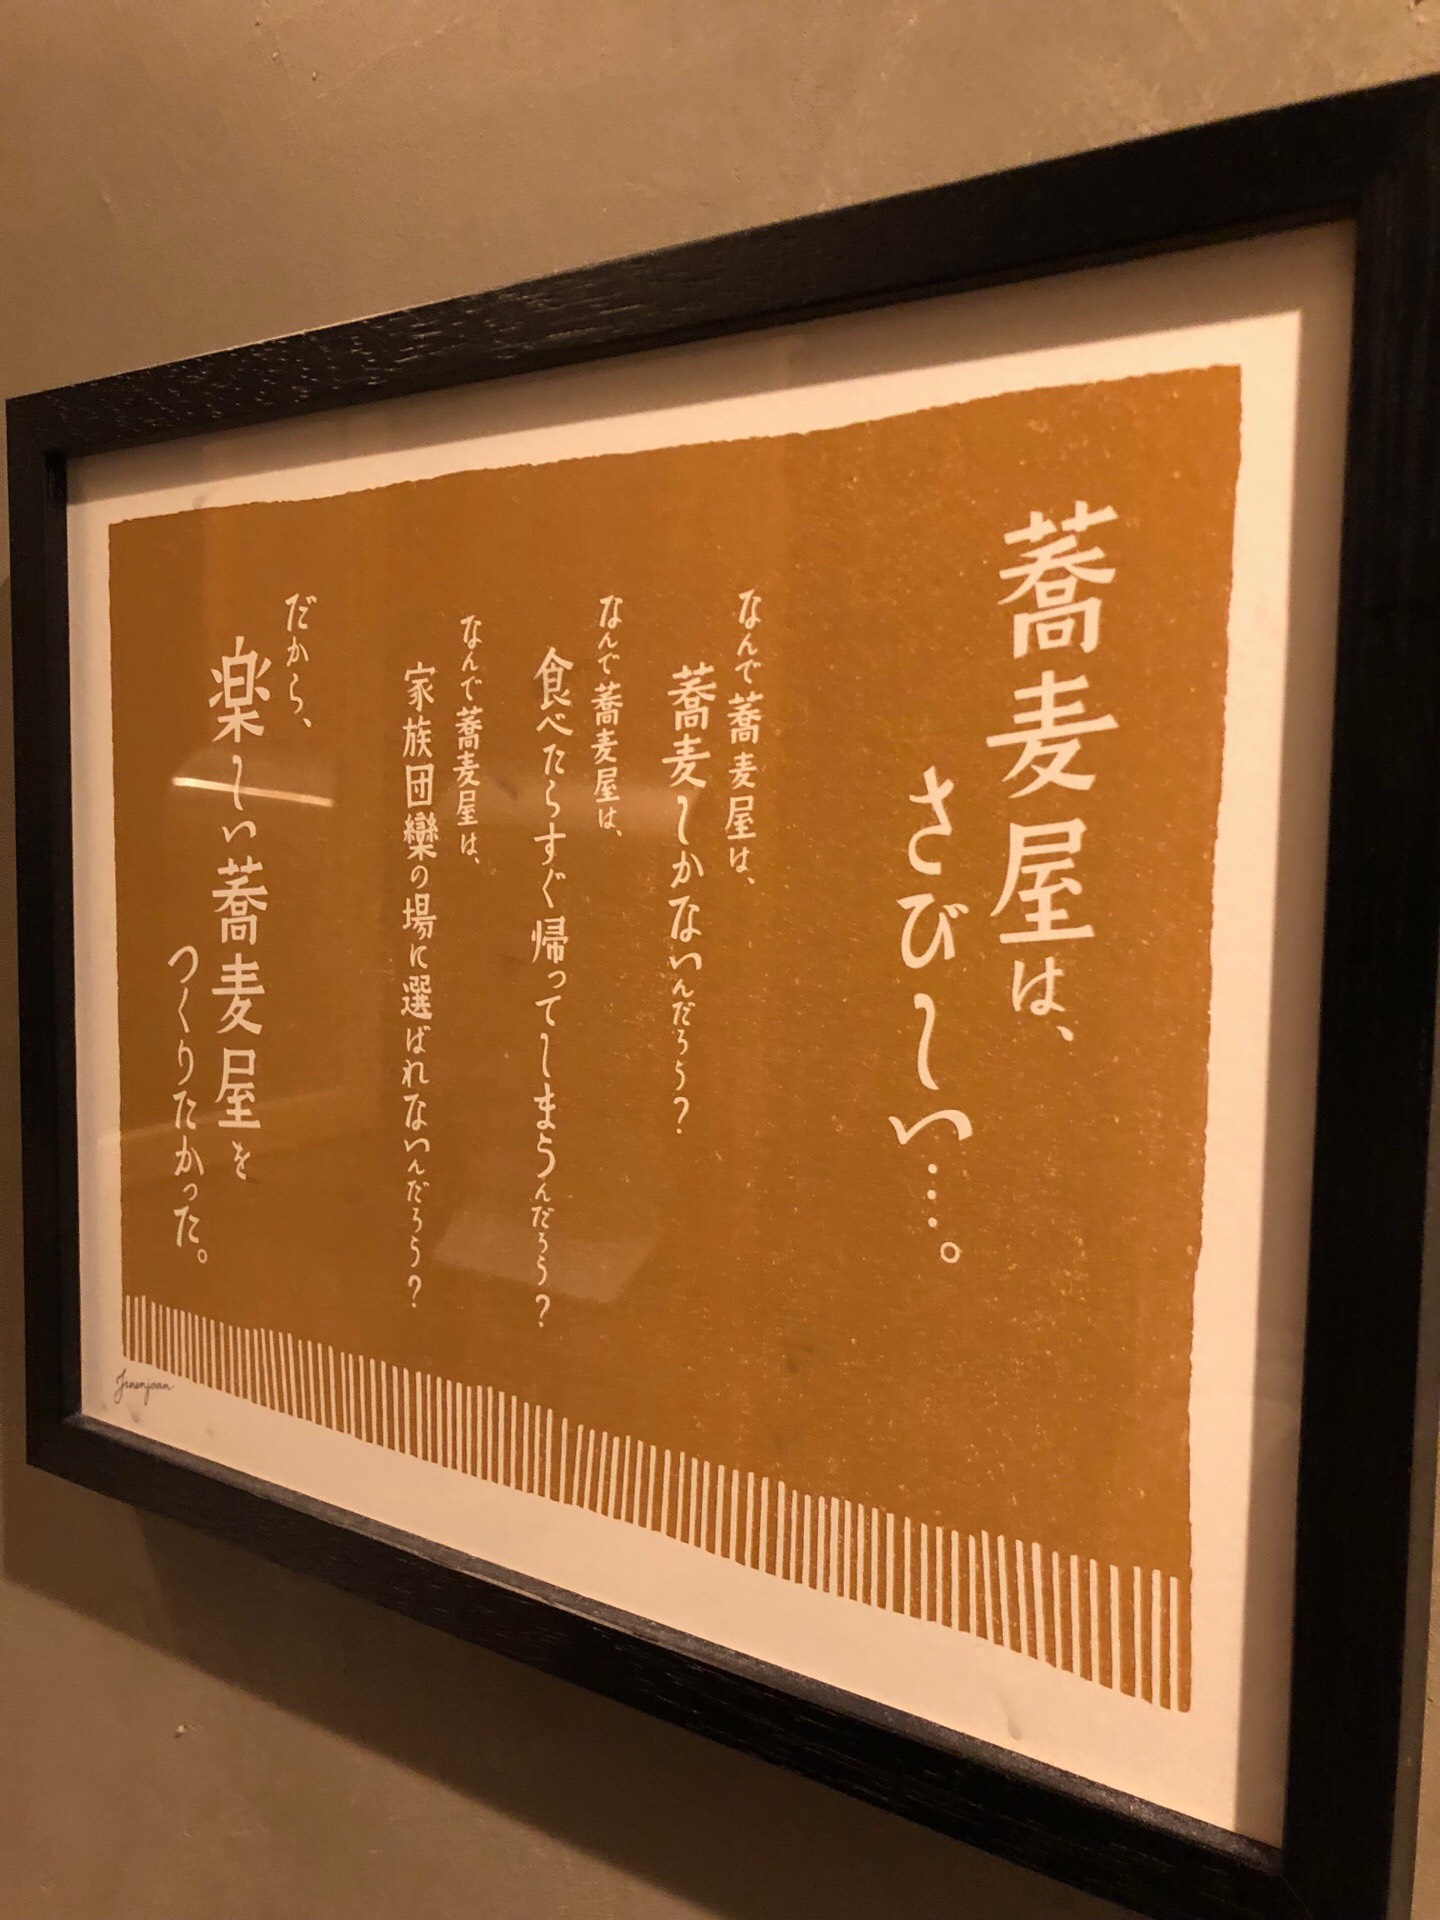 蕎麦屋は、
さびしい…。
なんで蕎麦屋は、
蕎麦しかないんだろう？
なんで蕎麦屋は、
食べたらすぐ帰ってしまうんだろう？
なんで蕎麦屋は、
家族団欒の場に選ばれないんだろう？
だから、
楽しい蕎麦屋を
つくりたかった。
Jinenjoan